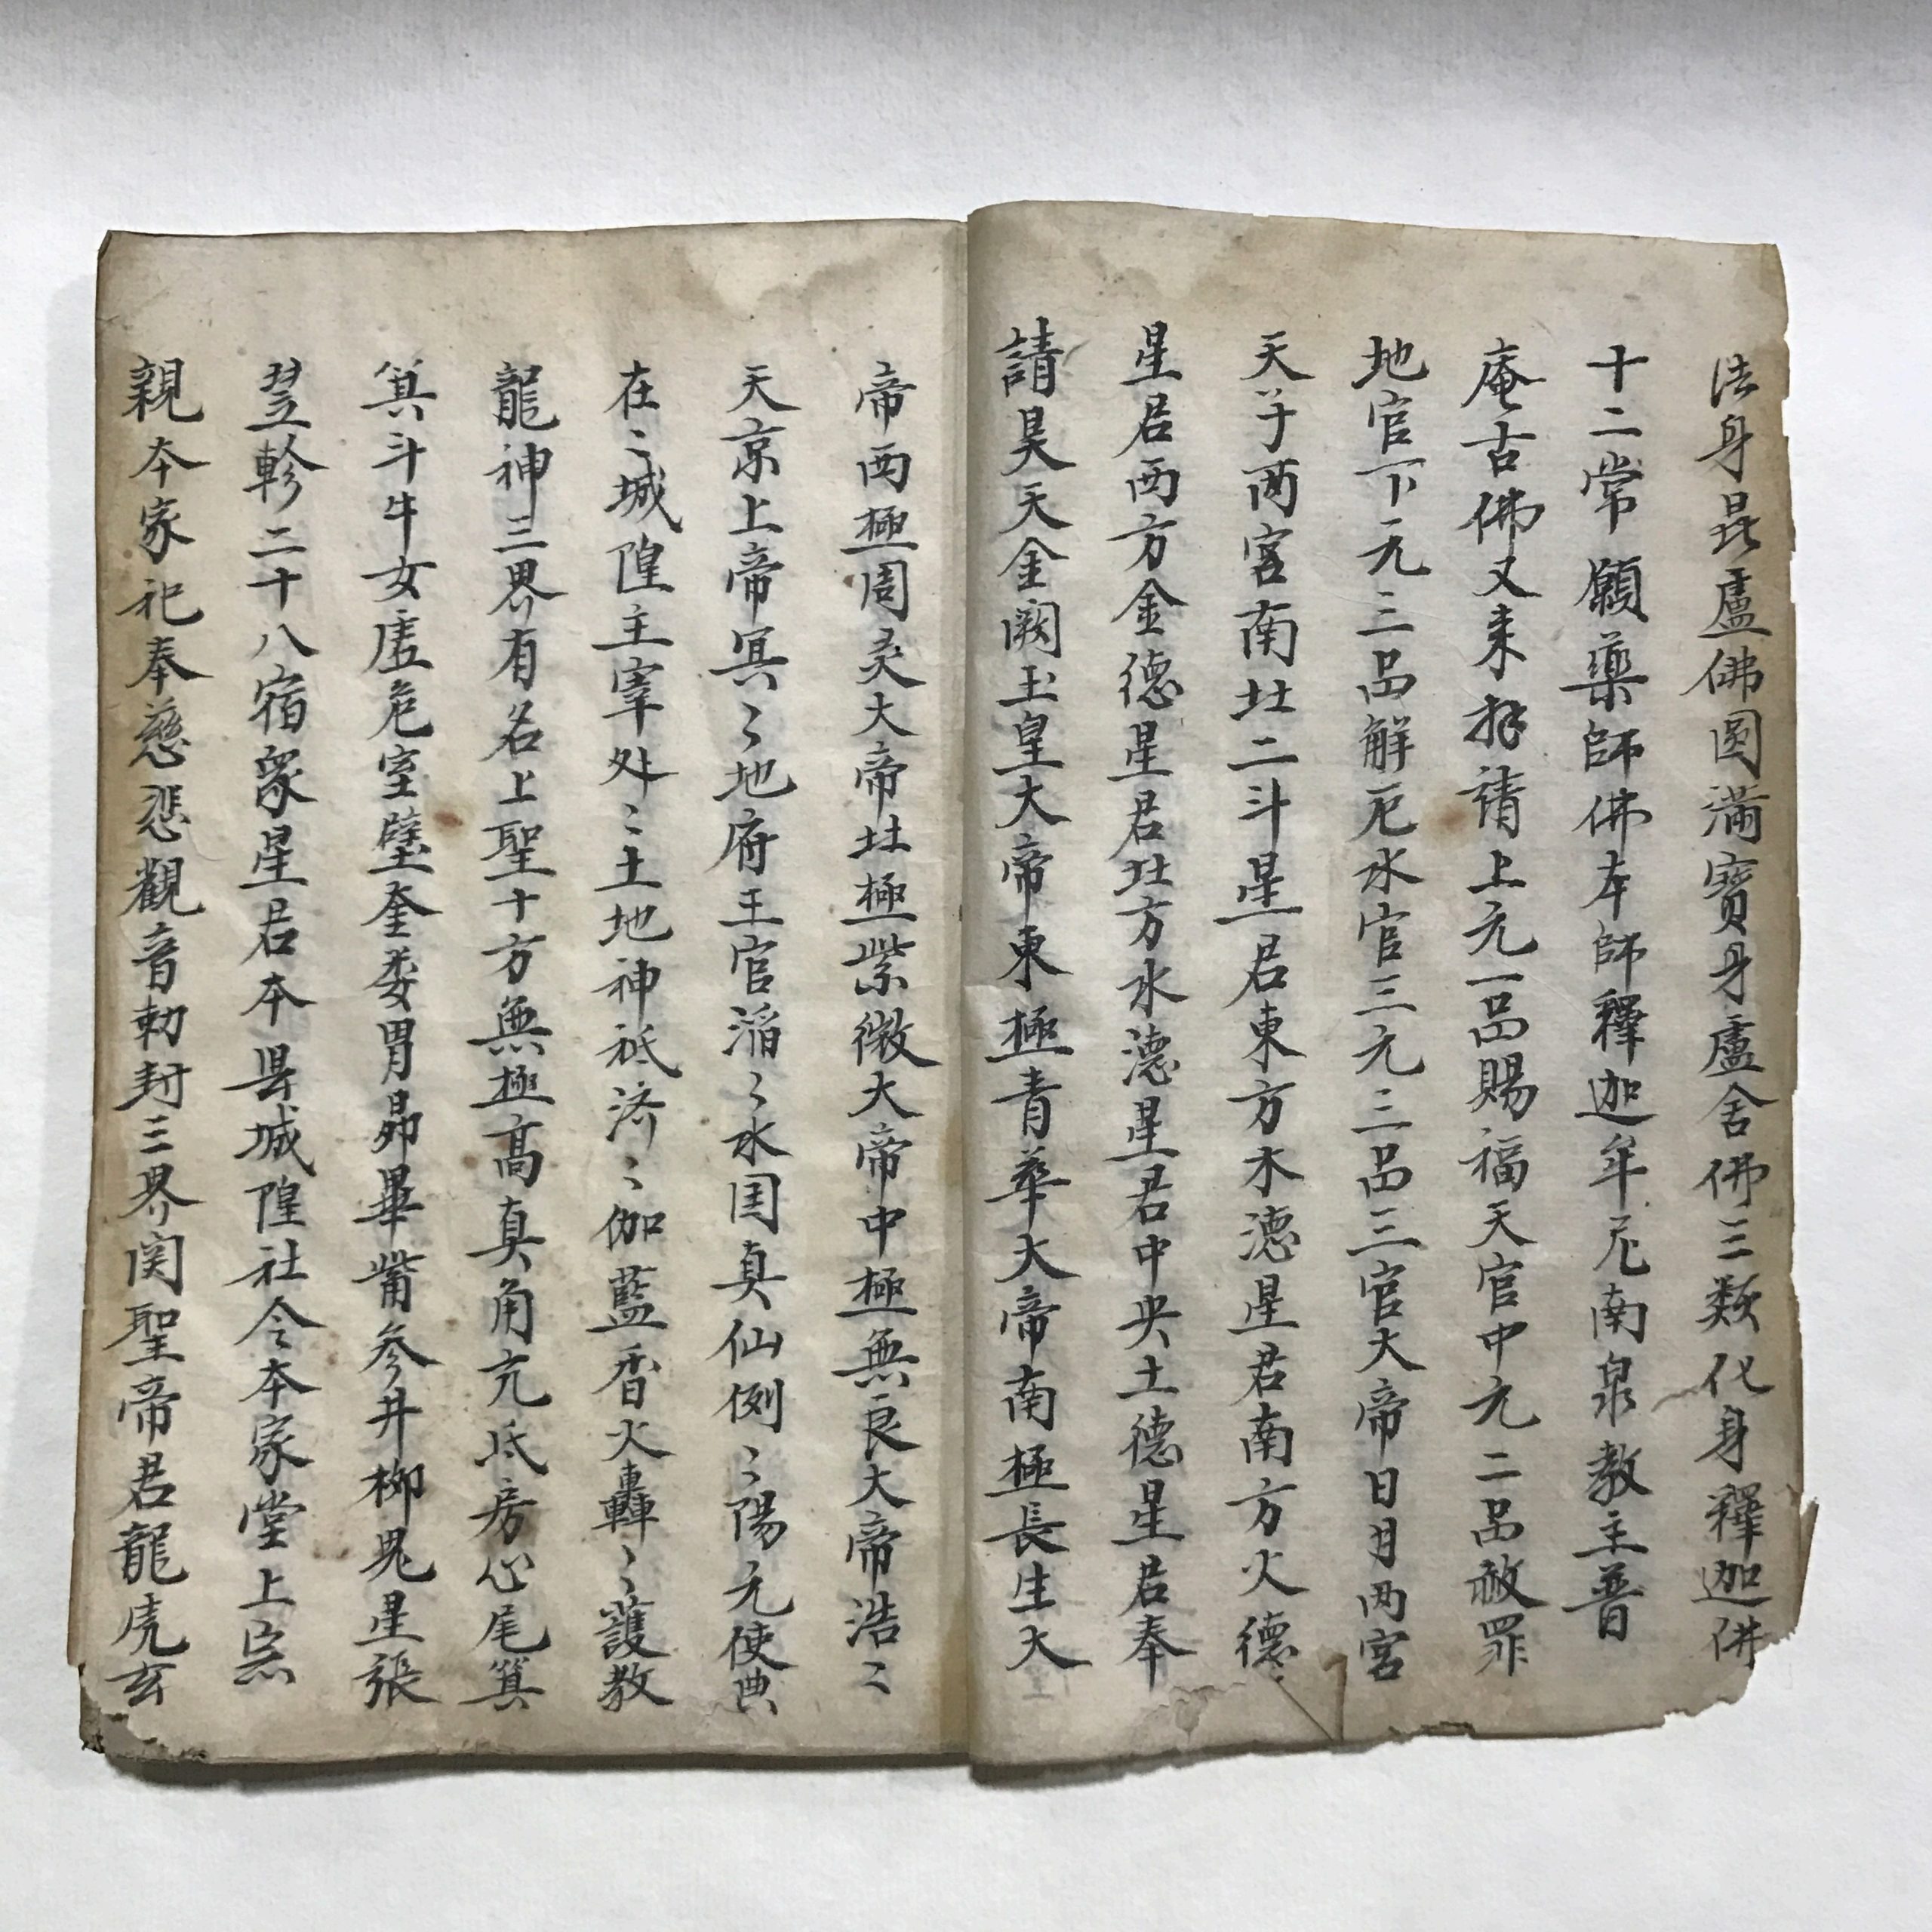 法身毘盧佛圆滿寳身盧舍佛三類化身釋迦佛
十二常願藥師佛本師釋迦牟尼南泉教主普
庵古佛又来拜请上元一品賜福天官中元二品赦罪
地官下元三品解厄水官三元三品三官大帝日月两宮
天子两宮南北二斗星君東方木德星君南方火德
星君西方金德星君北方水德星君中央土德星君奉
請昊天金阙玉皇大帝東極青華大帝南極長生大
帝西極周灵大帝北極紫微大帝中極無良大帝浩〻
天京上帝冥〻地府王官滔〻水国真仙例〻陽元使典
在〻城隍主宰处〻土地神祗济〻伽藍香火轟〻護教
龍神三界有名上聖十方無極高真角亢氐房心尾箕
箕斗牛女虚危室壁奎娄胃昴畢觜參井柳鬼星張
翌軫二十八宿眾星君本县城隍社令本家堂上宗
親本家祀奉慈悲觀音勅封三界関聖帝君龍虎玄